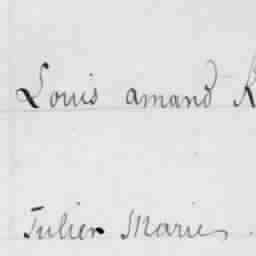 Louis amand
Julien Marie